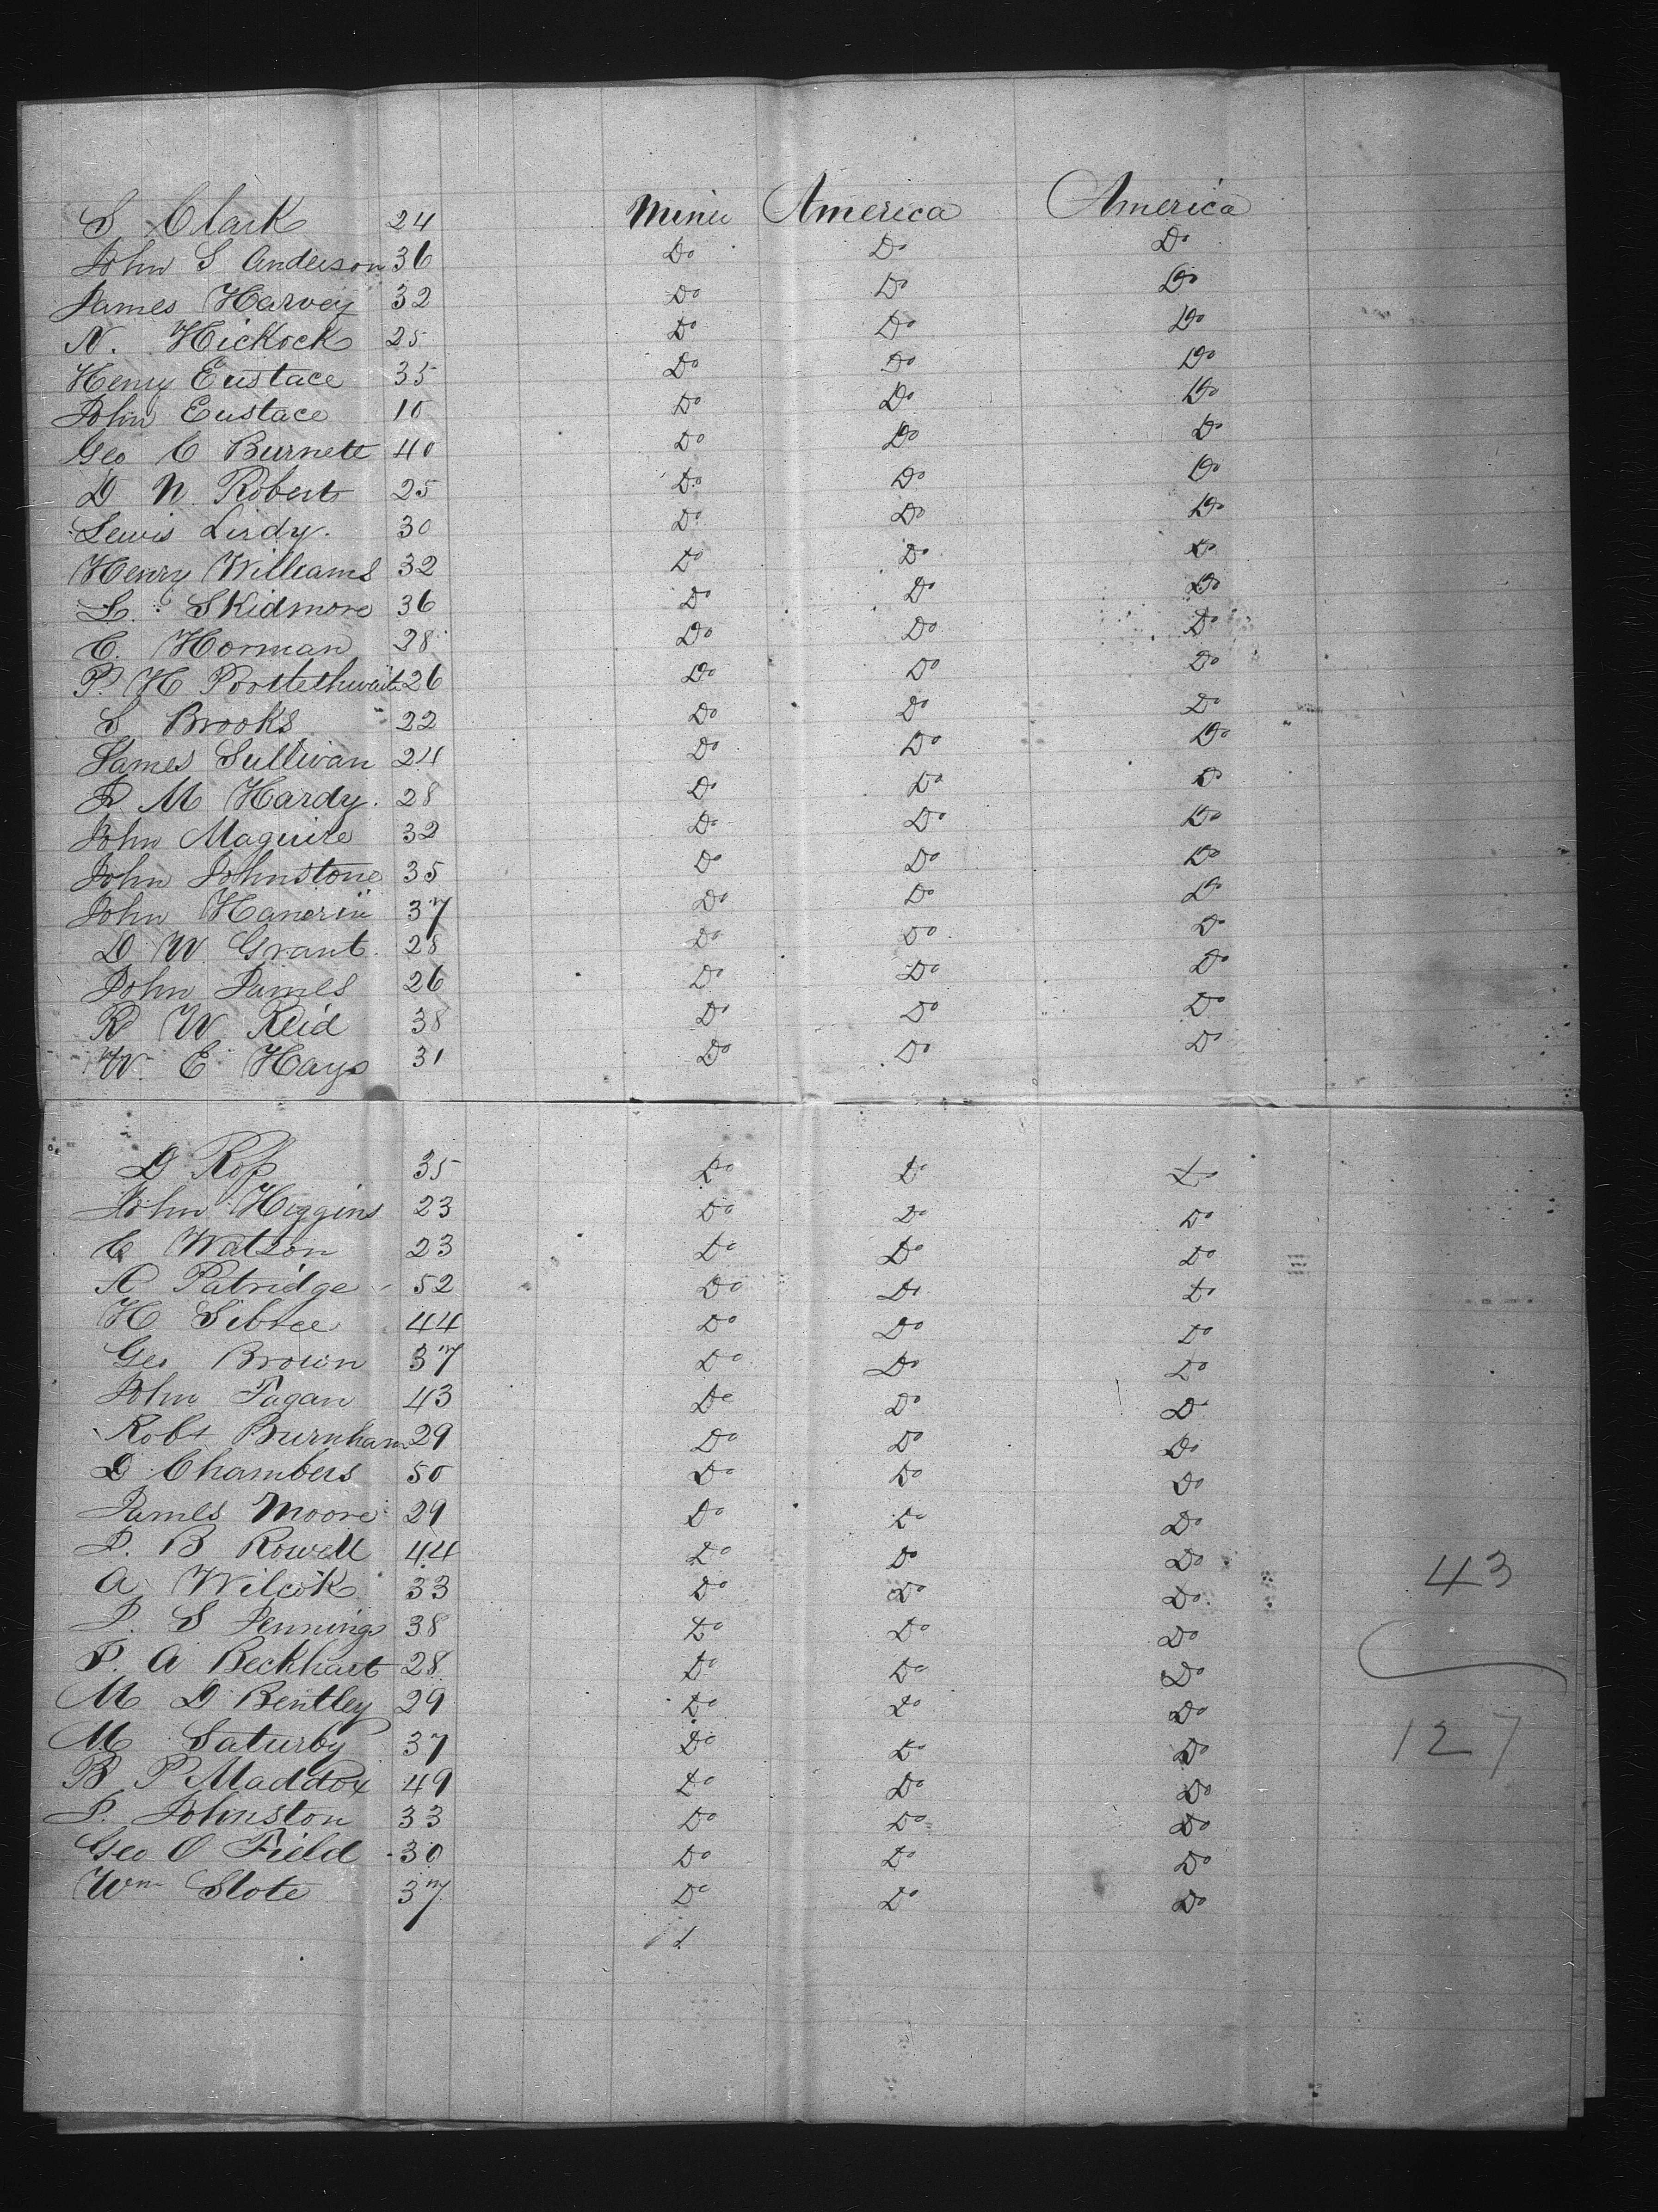 S Clark 24 Miner America America
John S Anderson 36 Do Do Do
James Harvey 32 Do Do Do
N. Hickock 25 Do Do Do
Henry Eustace 35 Do Do Do
John Eustace 10 Do Do Do
Geo C Burnett 40 Do Do Do
D N Roberts 25 Do Do Do
Lewis Lirdy. 30 Do Do Do
Henry Williams 32 Do Do Do
L. Skidmore 36 Do Do Do
C. Horman 28 Do Do Do
P. H Postlethwaite 26 Do Do Do
S Brooks 22 Do Do Do
James Sullivan 24 Do Do Do
J. M Hardy. 28 Do Do Do
John Maguire 32 Do Do Do
John Johnstone 35 Do Do Do
John 37 Do Do Do
D W. Grant. 28 Do Do Do
John James 26 Do Do Do
R W. Reid 38 Do Do Do
W. E. Hays 31 Do Do Do
D Ross 35 Do Do Do
John Higgins 23 Do Do Do
C Watson 23 Do Do Do
A Patridge 52 Do Do Do
H Sibree 44 Do Do Do
Geo Brown 37 Do Do Do
John Fagan 43 Do Do Do
Robt Burnham 29 Do Do Do
D Chambers 50 Do Do Do
James Moore 29 Do Do Do
J. B Rowell 44 Do Do Do
A Wilcok 33 Do Do Do 43
J. S Jennings 38 Do Do Do
P. A Beckhart 28 Do Do Do
M D Bentley 29 Do Do Do
M Saturby 37 Do Do Do 127
B P Maddox 49 Do Do Do
J. Johnston 33 Do Do Do
Geo O Field 30 Do Do Do
Wm Slote 37 Do Do Do